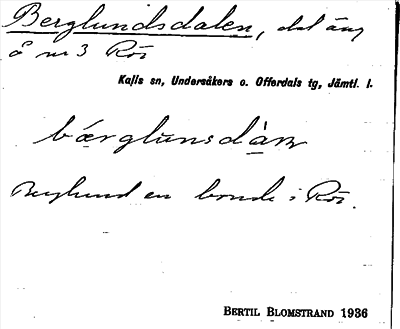 Berglundsdalen, del äng
å nr 3 Röi
Kalls sn, Undersåkers o. Offerdals tg, Jämtl. l.
bǽrglunsdàṇ
Berglund en bonde i Röi.
BERTIL BLOMSTRAND 1936